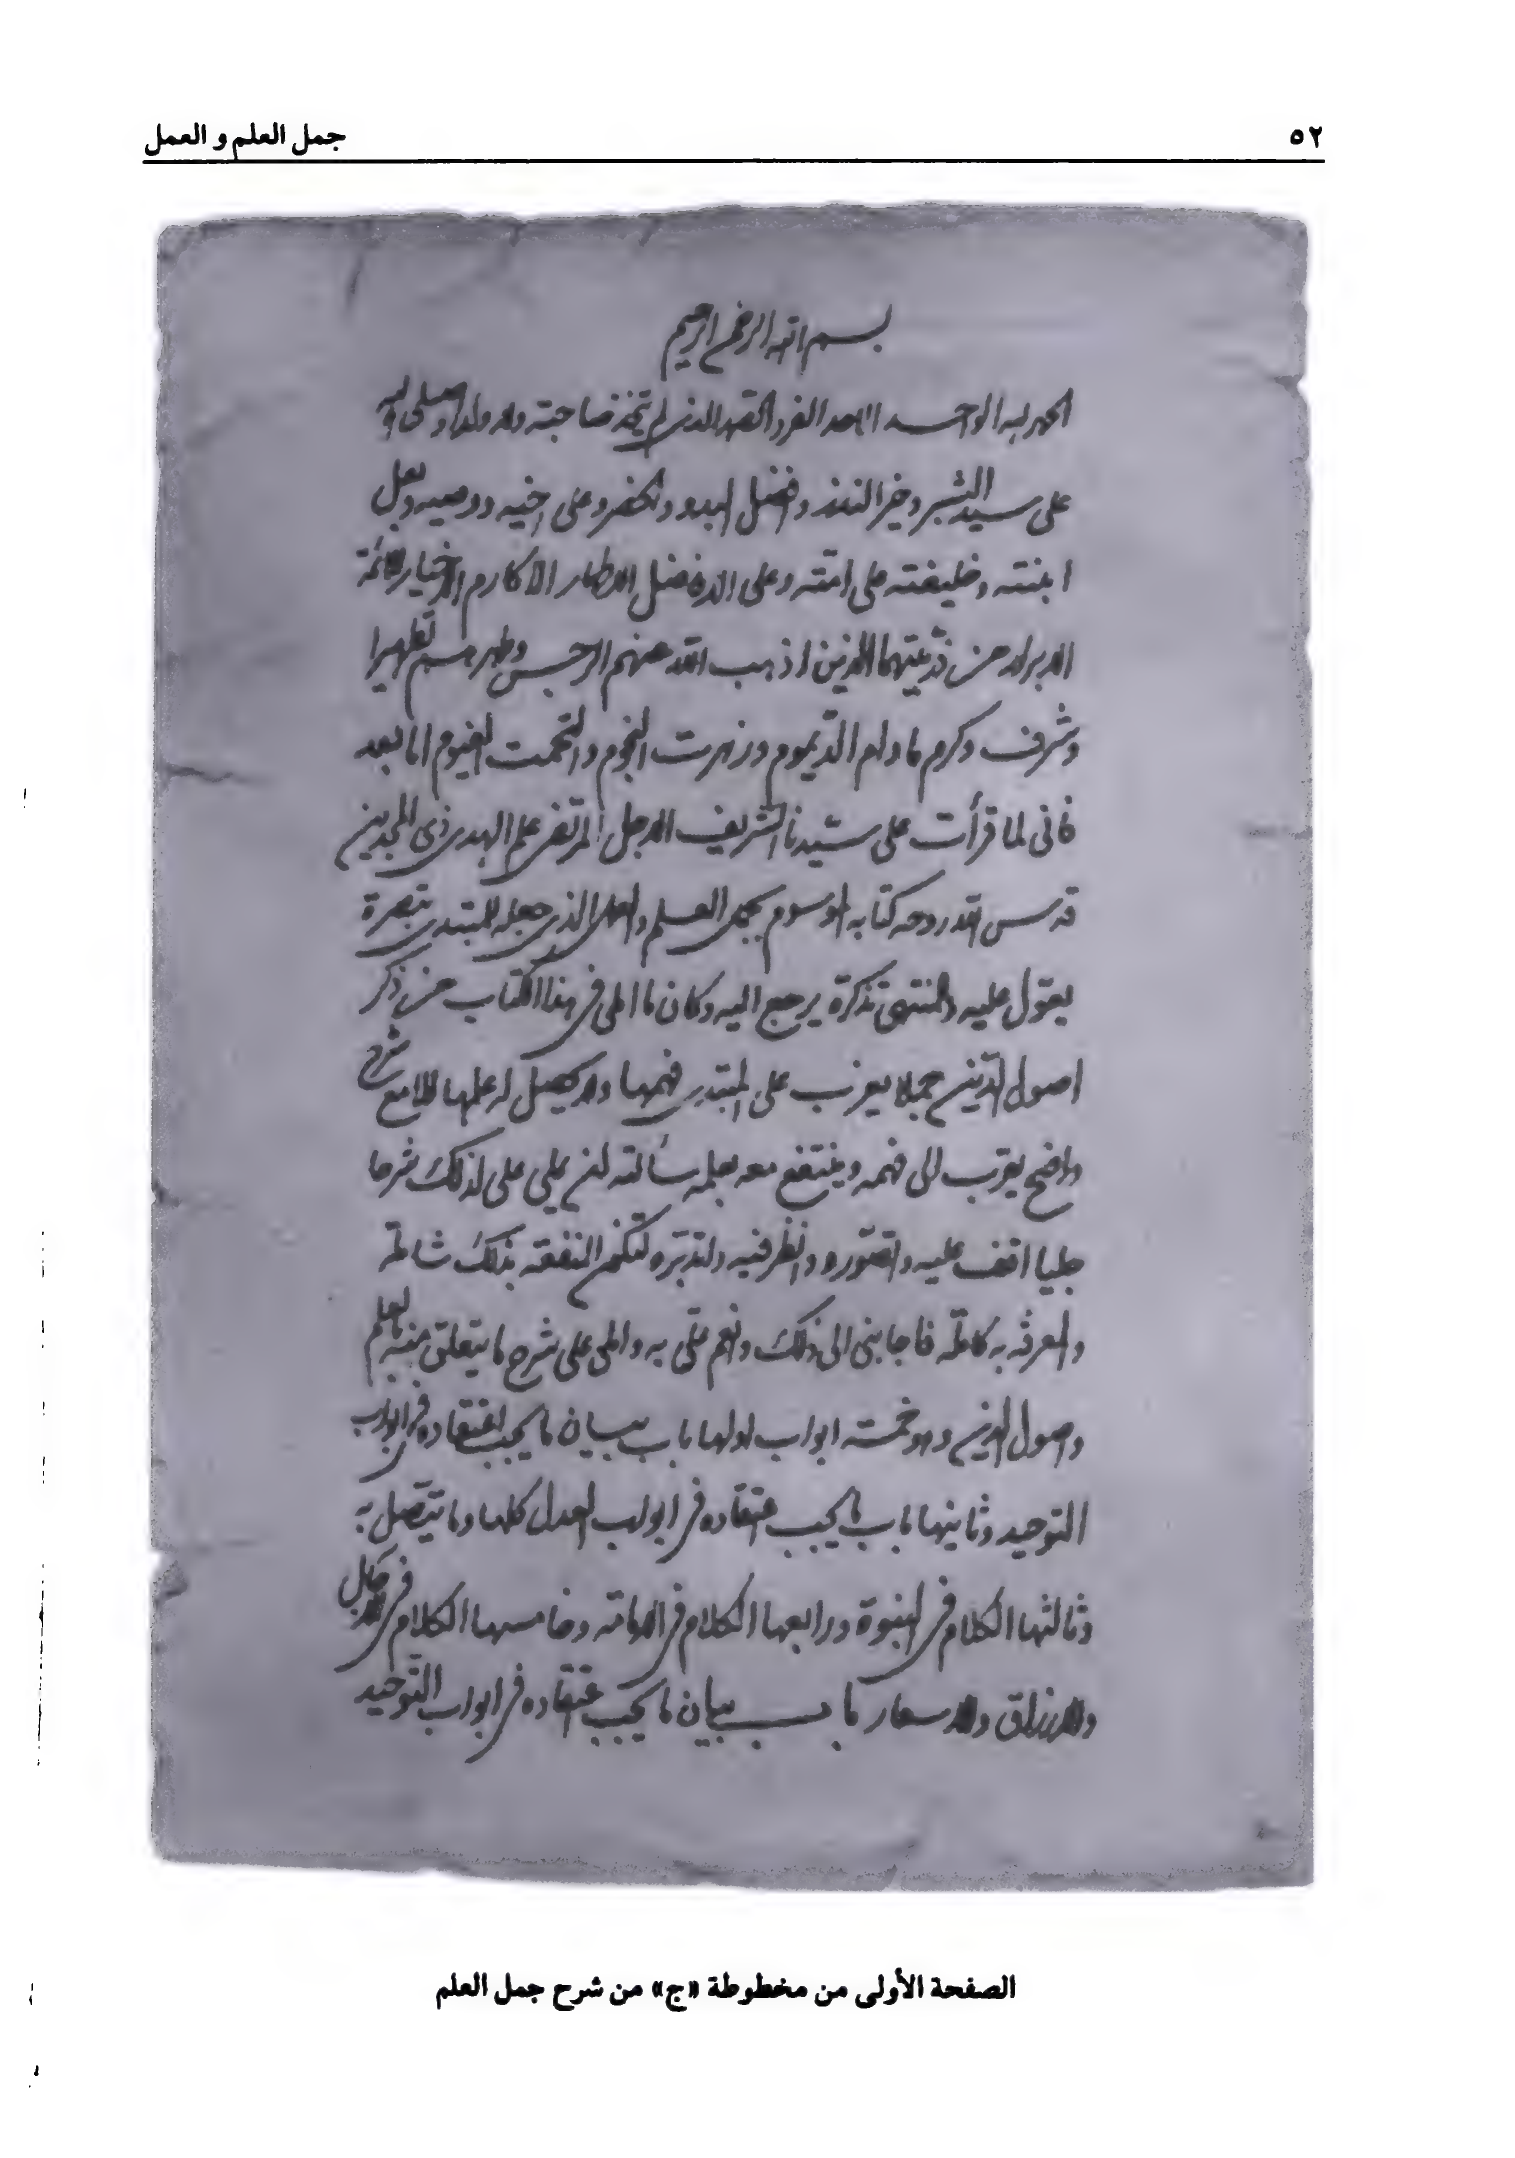 ٥٢
جمل العلم و العمل
بسم الله الرحمن الرحيم
الحمد لله الواحد الاحد الفرد الصمد الذى لم يتخذ صاحبة ولا ولدا وصلى الله
على سيد البشر وخير النذر وافضل البدو والحضر وعلى اخيه ووصيه وبعل
ابنته وخليفته على امته وعلى الافاضل الاطهار الاكارم الاخيار الائمة
الابرار من ذريتهما الذين اذهب الله عنهم الرجس وطهرهم تطهيرا
وشرف وكرم ما دام الديموم وزهرت النجوم والتحمت الغيوم اما بعد
فانى لما قرأت على سيدنا الشريف الاجل المرتضى علم الهدى ذى المجدين
قدس الله روحه كتابه الموسوم بجمل العلم والعمل الذى جعله للمبتدى تبصرة
يعول عليه وللمنتهى تذكرة يرجع اليه وكان ما املى فى هذا الكتاب من ذكر
اصول الدين جملا يعزب على المبتدى فهمها ولا يحصل له علمها الا مع شرح
واضح يقرب الى فهمه وينتفع معه بعلمه سألته ان يملى على لذلك شرحا
جليا اقف عليه واتصوره وانظر فيه واتدبره لتكمل المنفعة بذلك شاملة
والمعرفة به كاملة فاجابنى الى ذلك وانعم على به واملى على شرح ما يتعلق منه بالعلم
واصول الدين وهو خمسة ابواب اولها باب بيان ما يجب اعتقاده فى ابواب
التوحيد وثانيها باب ما يجب اعتقاده فى ابواب العدل كلها وما يتصل به
وثالثها الكلام فى النبوة ورابعها الكلام فى الامامة وخامسها الكلام فى الاجال
والارزاق والاسعار باب بيان ما يجب اعتقاده فى ابواب التوحيد
الصفحة الأولى من مخطوطة «ج» من شرح جمل العلم